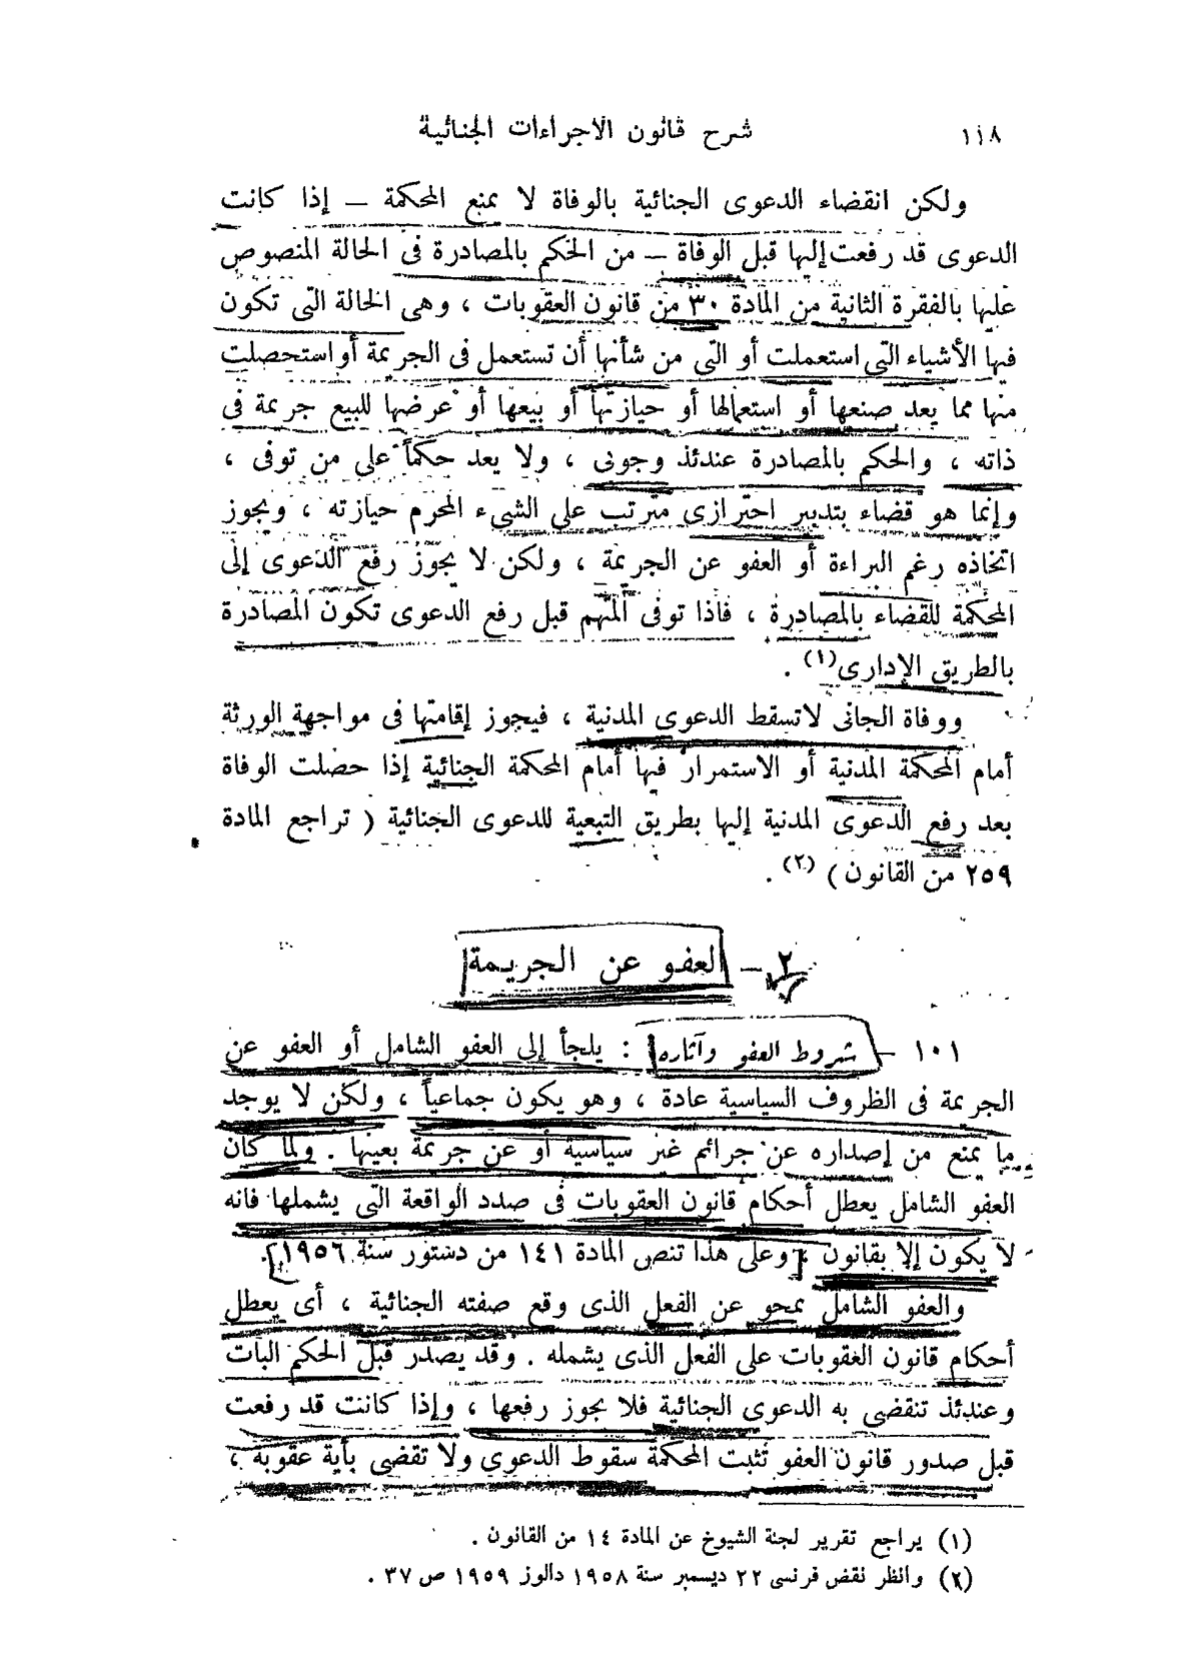 ١١٨
شرح قانون الاجراءات الجنائية
ولكن انقضاء الدعوى الجنائية بالوفاة لا يمنع المحكمة – إذا كانت
الدعوى قد رفعت إليها قبل الوفاة – من الحكم بالمصادرة فى الحالة المنصوص
عليها بالفقرة الثانية من المادة ٣٠ من قانون العقوبات ، وهى الحالة التى تكون
فيها الأشياء التى استعملت أو التى من شأنها أن تستعمل فى الجريمة أو استحصلت
منها مما يعد صنعها أو استعمالها أو حيازتها أو بيعها أو عرضها للبيع جريمة فى
ذاته ، والحكم بالمصادرة عندئذ وجوبى ، ولا يعد حكماً على من توفى ،
وإنما هو قضاء بتدبير احترازى مترتب على الشىء المحرم حيازته ، ويجوز
اتخاذه رغم البراءة أو العفو عن الجريمة ، ولكن لا يجوز رفع الدعوى إلى
المحكمة للقضاء بالمصادرة ، فاذا توفى المتهم قبل رفع الدعوى تكون المصادرة
بالطريق الإدارى(١) .
ووفاة الجانى لا تسقط الدعوى المدنية ، فيجوز إقامتها فى مواجهة الورثة
أمام المحكمة المدنية أو الاستمرار فيها أمام المحكمة الجنائية إذا حصلت الوفاة
بعد رفع الدعوى المدنية إليها بطريق التبعية للدعوى الجنائية ( تراجع المادة
٢٥٩ من القانون ) (٢) .
٢ – العفو عن الجريمة
١٠١ – شروط العفو وآثاره : يلجأ إلى العفو الشامل أو العفو عن
الجريمة فى الظروف السياسية عادة ، وهو يكون جماعياً ، ولكن لا يوجد
ما يمنع من إصداره عن جرائم غير سياسية أو عن جريمة بعينها . ولما كان
العفو الشامل يعطل أحكام قانون العقوبات فى صدد الواقعة التى يشملها فانه
لا يكون إلا بقانون ، وعلى هذا تنص المادة ١٤١ من دستور سنة ١٩٥٦ .
والعفو الشامل يمحو عن الفعل الذى وقع صفته الجنائية ، أى يعطل
أحكام قانون العقوبات على الفعل الذى يشمله . وقد يصدر قبل الحكم البات
وعندئذ تنقضى به الدعوى الجنائية فلا يجوز رفعها ، وإذا كانت قد رفعت
قبل صدور قانون العفو تثبت المحكمة سقوط الدعوى ولا تقضى بأية عقوبة ،
(١) يراجع تقرير لجنة الشيوخ عن المادة ١٤ من القانون .
(٢) وانظر نقض فرنسى ٢٢ ديسمبر سنة ١٩٥٨ دالوز ١٩٥٩ ص ٣٧ .